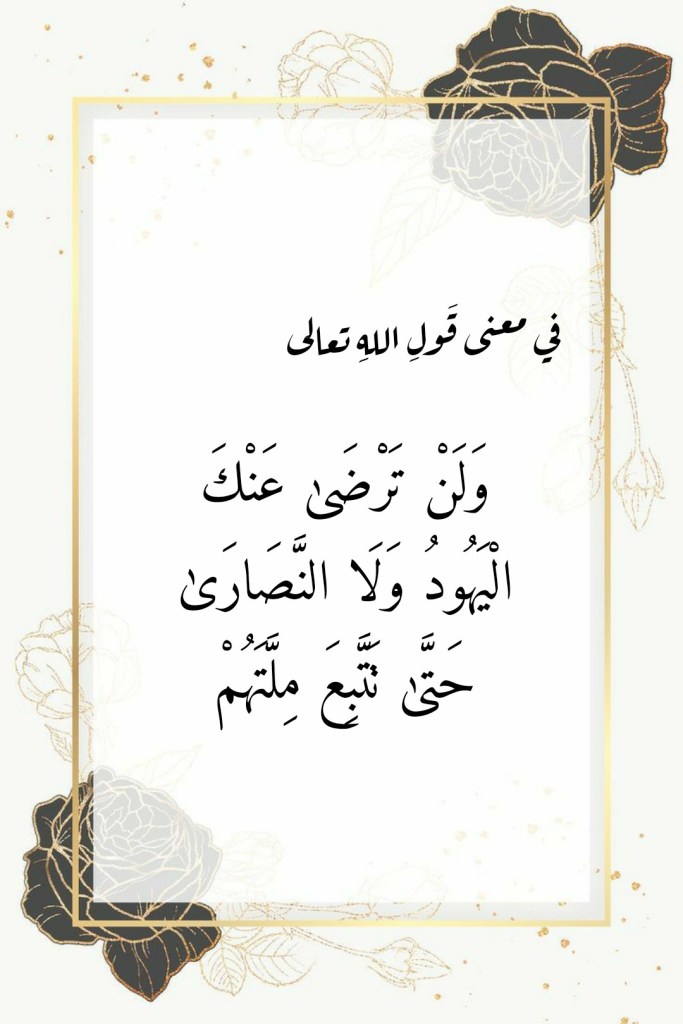 في معنى قَولِ اللهِ تعالى
وَلَنْ تَرْضَىٰ عَنْكَ
الْيَهُودُ وَلَا النَّصَارَىٰ
حَتَّىٰ تَتَّبِعَ مِلَّتَهُمْ